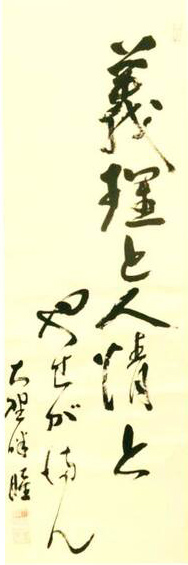 義理と人情と
やせがまん
大野伴睦